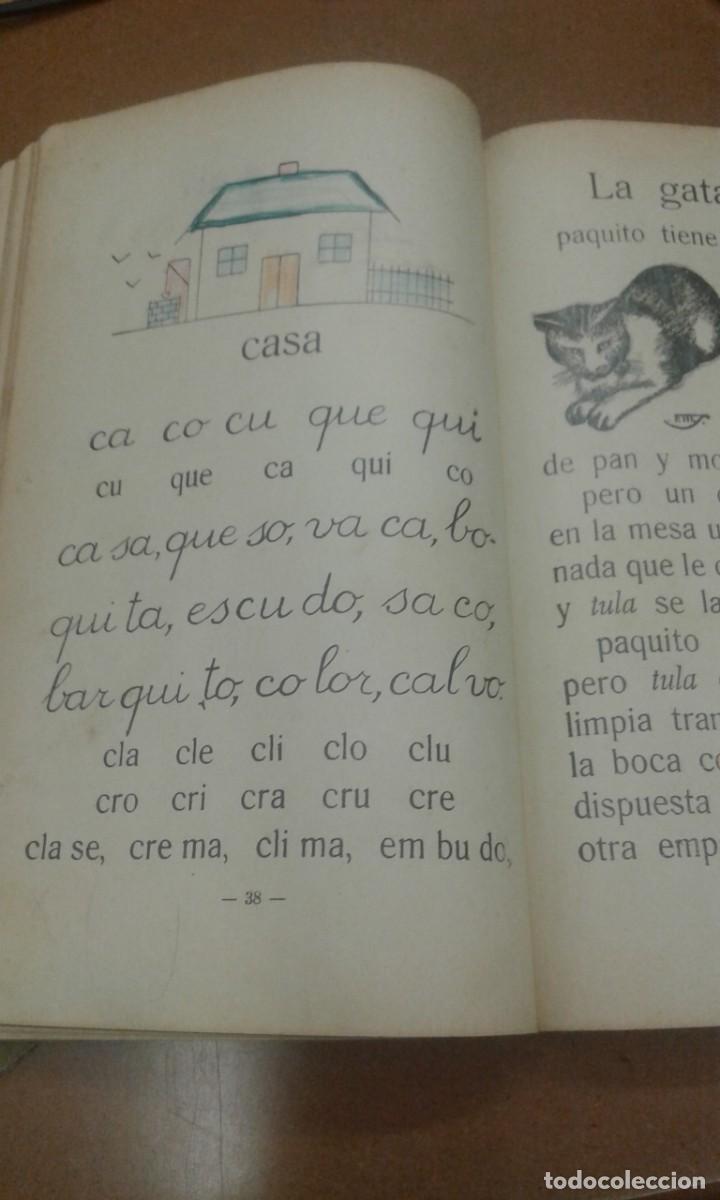 casa
ca co cu que qui
cu que ca qui co
ca sa, que so, va ca, bo-
qui ta, es cu do, sa co,
bar qui to, co lor, cal vo.
cla cle cli clo clu
cro cri cra cru cre
cla se, cre ma, cli ma, em bu do,
— 38 —
La gata
paquito tiene
de pan y
pero un
en la mesa
nada que le
y tula se la
paquito
pero tula
limpia
la boca
dispuesta
otra
todocoleccion